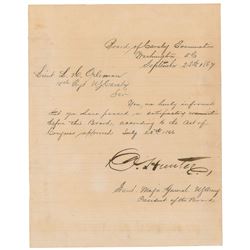 Board of Cavalry Examination
Washington, D.C.
September 25th, 1867
Lieut. L. H.
10th Regt US Cavalry
Sir
You are hereby informed
that you have passed a satisfactory examination
before this Board, according to the Act of
Congress approved July 28th 1866
D. Hunter,
Brevet Major General US Army
President of the Board